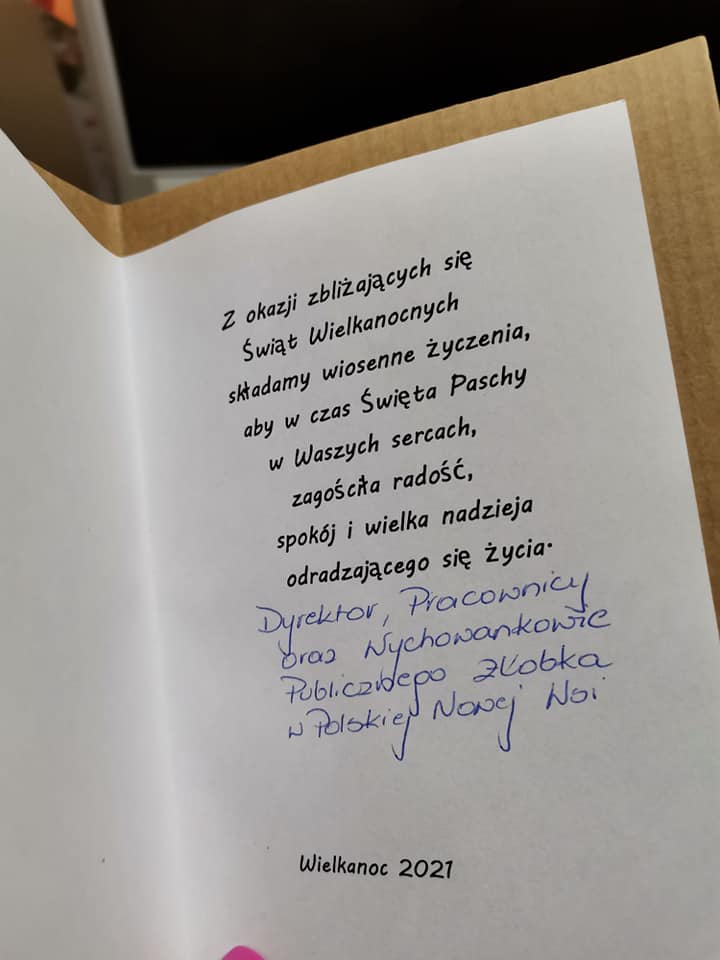 Z okazji zbliżających się
Świąt Wielkanocnych
składamy wiosenne życzenia,
aby w czas Święta Paschy
w Waszych sercach,
zagościła radość,
spokój i wielka nadzieja
odradzającego się życia.
Dyrektor, Pracownicy
oraz Wychowankowie
Publicznego Żłobka
w Polskiej Nowej Wsi
Wielkanoc 2021